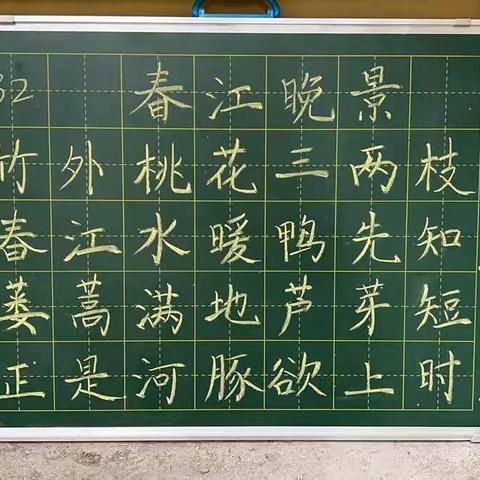 32 春江晚景
竹外桃花三两枝
春江水暖鸭先知
蒌蒿满地芦芽短
正是河豚欲上时